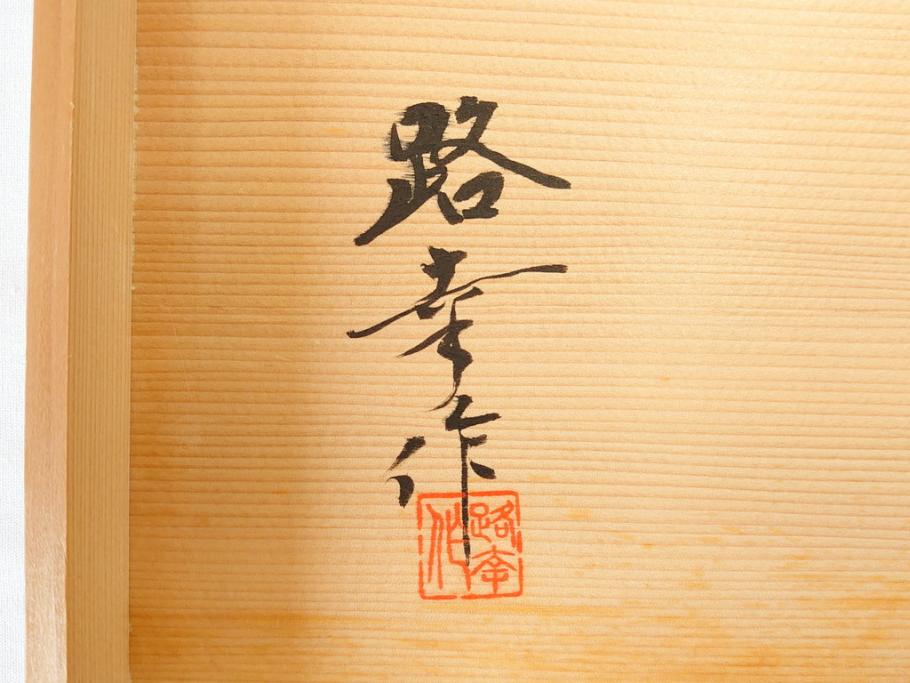 路幸作
路幸作